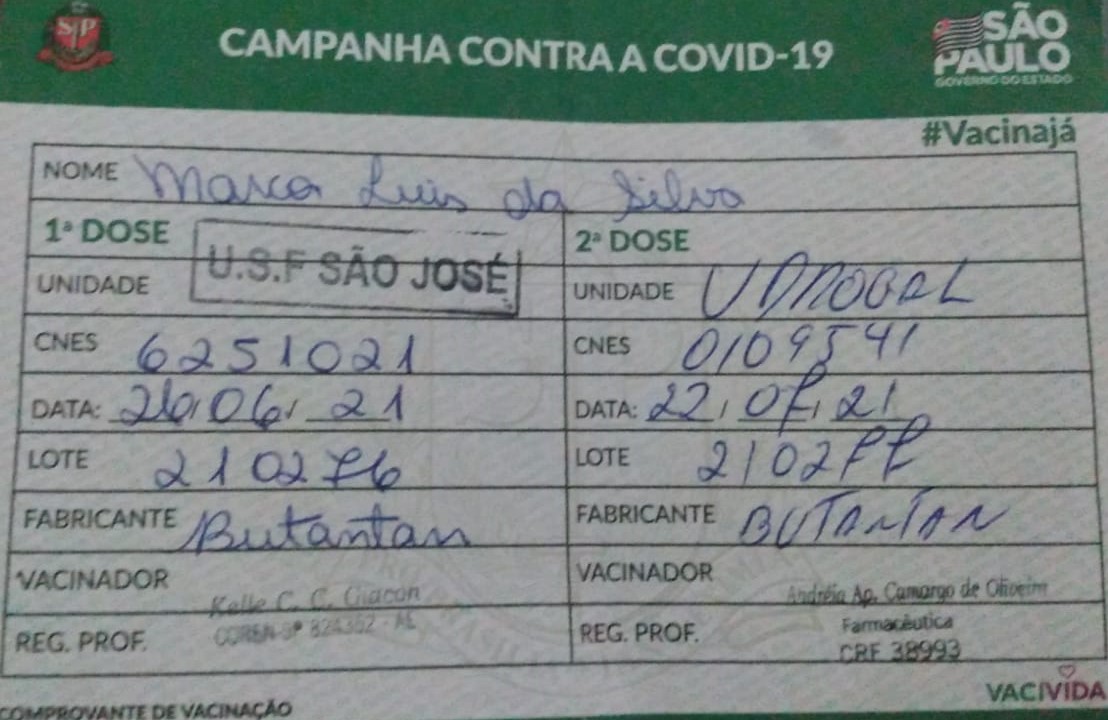 SP
CAMPANHA CONTRA A COVID-19
SÃO
PAULO
GOVERNO DO ESTADO
#Vacinajá
NOME Marco Luis da Silva
1ª DOSE
U.S.F SÃO JOSÉ
UNIDADE
CNES 6251021
DATA: 26/06/21
LOTE 210276
FABRICANTE Butantan
VACINADOR Kelle C. C. Giacon
REG. PROF. COREN-SP 824352 - AE
2ª DOSE
UNIDADE
CNES 0109541
DATA: 22/07/21
LOTE 210277
FABRICANTE BUTANTAN
VACINADOR Andréia Ap. Camargo de Oliveira
REG. PROF. Farmacêutica
CRF 38993
VACIVIDA
COMPROVANTE DE VACINAÇÃO